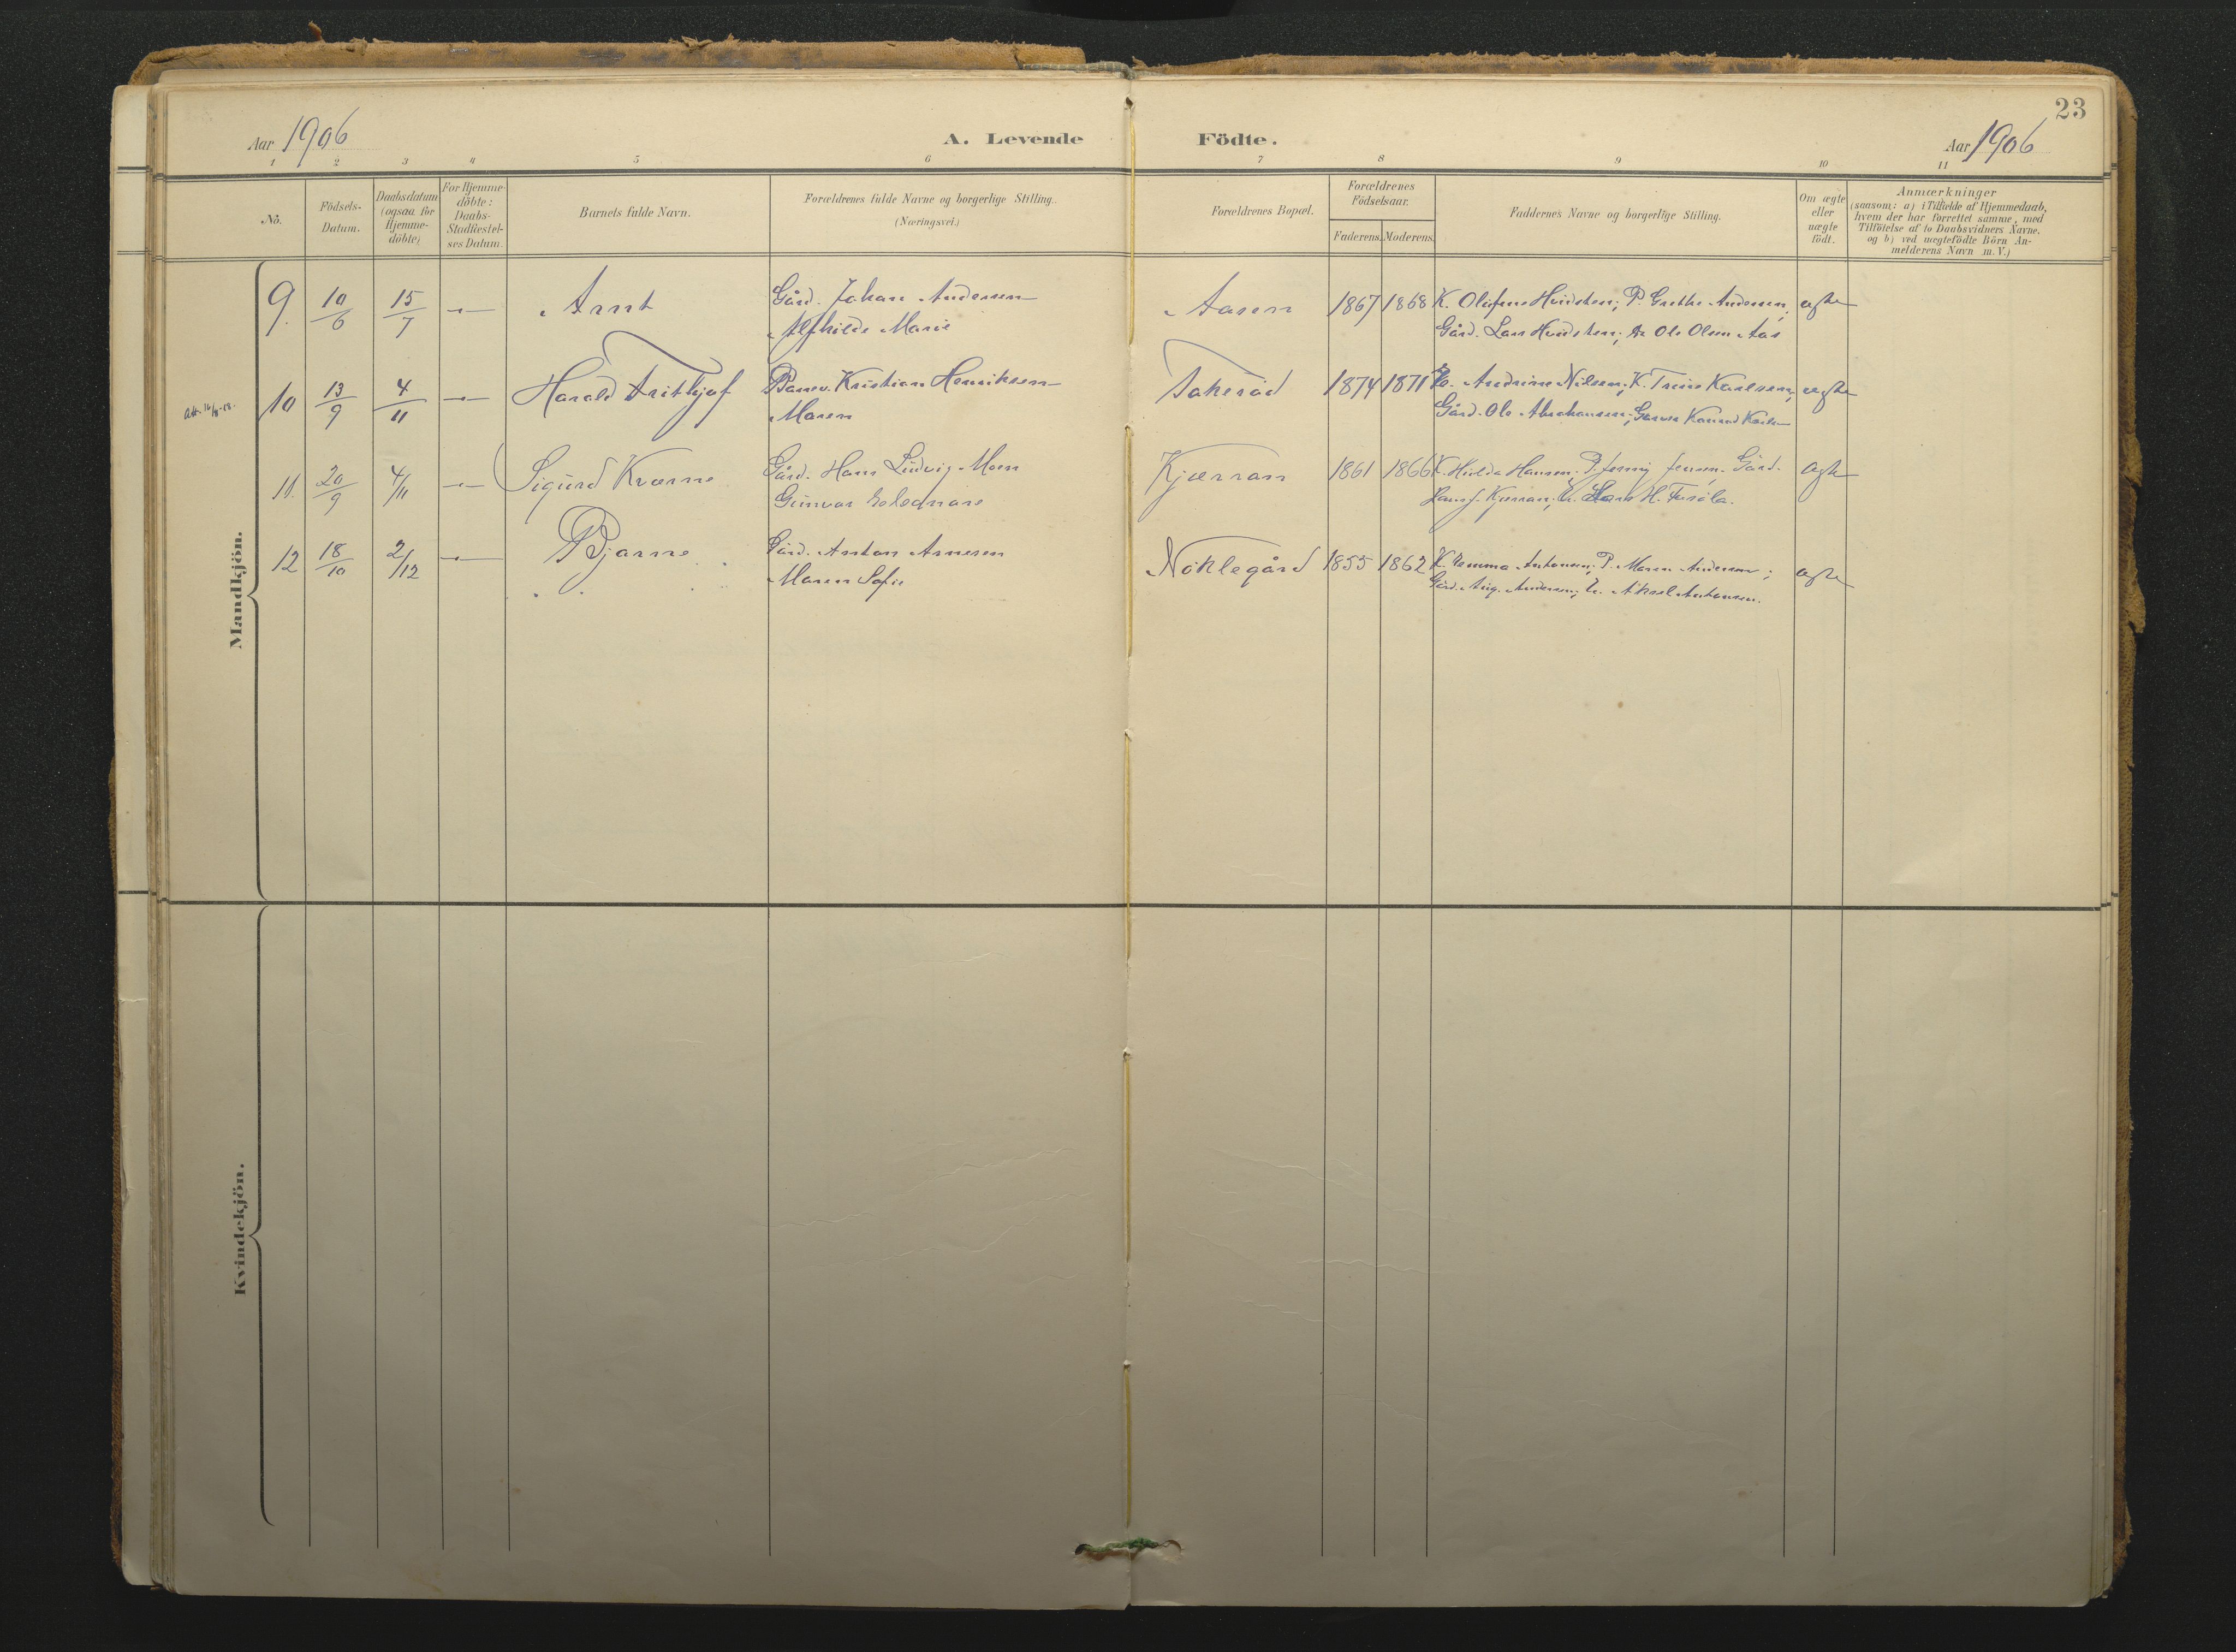 23
Aar 1906
A. Levende Fødte.
Aar 1906
1 2 3 4 5 6 7 8 9 10 11
No.
Födsels-
Datum.
Daabsdatum
(ogsaa for
Hjemme-
döbte)
For Hjemme-
döbte:
Daabs-
Stadfæstel-
ses Datum.
Barnets fulde Navn.
Forældrenes fulde Navne og borgerlige Stilling.
(Næringsvei.)
Forældrenes Bopæl.
Forældrenes
Födselsaar.
Faderens. Moderens.
Faddernes Navne og borgerlige Stilling.
Om ægte
eller
uægte
födt.
Anmærkninger
(saasom: a) i Tilfælde af Hjemmedaab,
hvem der har forrettet samme, med
Tilføielse af to Daabsvidners Navne.
og b) ved uægtefödte Börn An-
melderens Navn m.V.)
Mandkjön.
9. 10/6 15/7 -"- Arnt Gård. Johan Andersen Aasen 1867 1868 K. Olefine Hvidsten; P. Grethe Andersen; ægte
Alfhilde Marie Gård. Lars Hvidsten; Ole Olsen Aas
10 13/9 4/11 -"- Harald Frithjof Banev. Kristian Henriksen Takeröd 1874 1871 Andrine Nilsen; K. Karlsen; ægte
Maren Gård. Ole Abrahamsen; Konrad
11. 20/9 4/11 -"- Sigurd Kværne Gård. Hans Ludvig Moen Kjærran 1861 1866 K. Hulda Hansen; P. Jenny Jensen. Gård. ægte
Gunvor Hans J. Kjærran; Hans H.
12 18/10 2/12 -"- Bjarne Gård. Anton Arnesen Nöklegård 1855 1862 K. Emma Antonsen; P. Maren Andersen; ægte
Maren Sofie Gård. Aug. Andersen; Aksel Antonsen.
Kvindekjön.